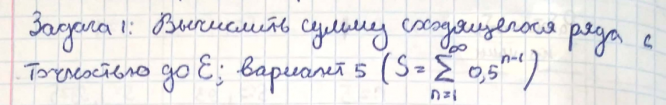 Задача 1: Вычислить сумму сходящегося ряда с
точностью до ε; вариант 5 (S = ∑_{n=1}^{∞} 0,5^{n-1})